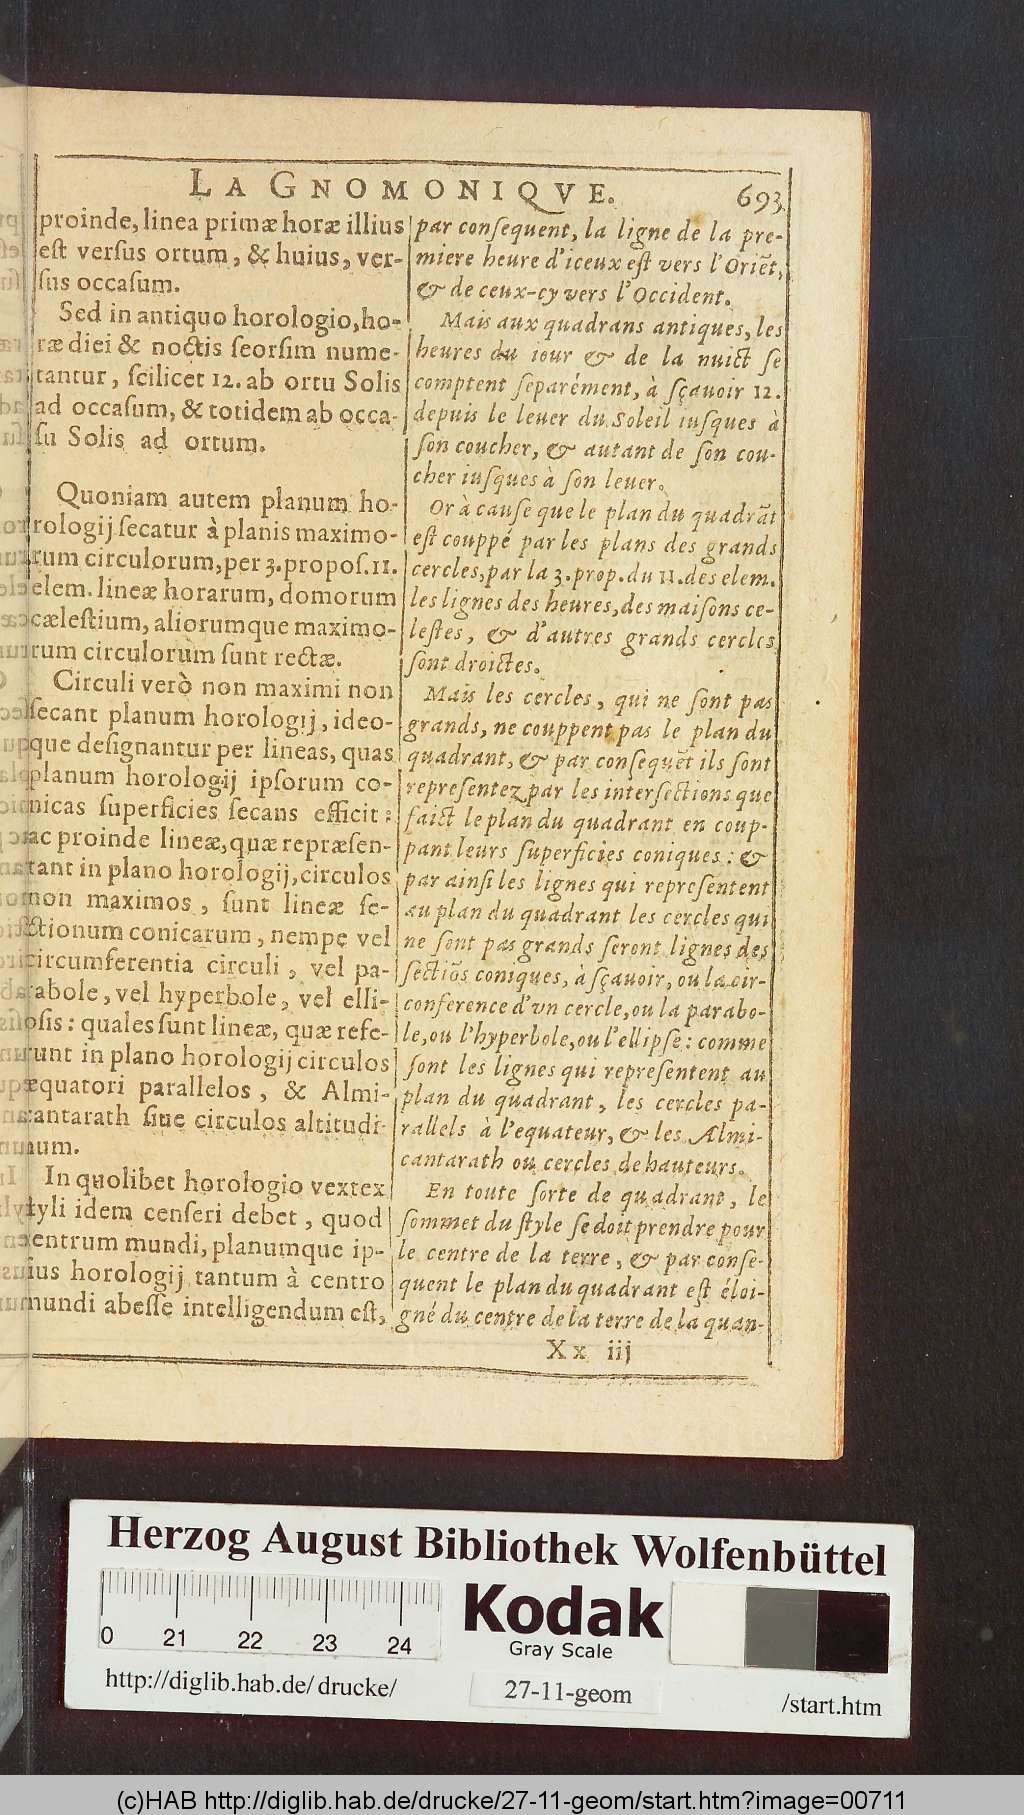 LA GNOMONIQVE. 693
proinde, linea primæ horæ illius
est versus ortum, & huius, ver-
sus occasum.
Sed in antiquo horologio, ho-
ræ diei & noctis seorsim nume-
rantur, scilicet 12. ab ortu Solis
ad occasum, & totidem ab occa-
su Solis ad ortum.
Quoniam autem planum ho-
rologij secatur à planis maximo-
rum circulorum, per 3. propos. 11.
elem. lineæ horarum, domorum
cælestium, aliorumque maximo-
rum circulorum sunt rectæ.
Circuli verò non maximi non
secant planum horologij, ideo-
que designantur per lineas, quas
planum horologij ipsorum co-
nicas superficies secans efficit:
ac proinde lineæ, quæ repræsen-
tant in plano horologij, circulos
non maximos, sunt lineæ se-
ctionum conicarum, nempe vel
circumferentia circuli, vel pa-
rabole, vel hyperbole, vel elli-
psis: quales sunt lineæ, quæ refe-
runt in plano horologij circulos
æquatori parallelos, & Almi-
cantarath siue circulos altitudi-
num.
In quolibet horologio vertex
styli idem censeri debet, quod
centrum mundi, planumque ip-
sius horologij tantum à centro
mundi abesse intelligendum est,
par consequent, la ligne de la pre-
miere heure d'iceux est vers l'Oriẽt,
& de ceux-cy vers l'Occident.
Mais aux quadrans antiques, les
heures du iour & de la nuict se
comptent separément, à sçauoir 12.
depuis le leuer du Soleil iusques à
son coucher, & autant de son cou-
cher iusques à son leuer.
Or à cause que le plan du quadrãt
est couppé par les plans des grands
cercles, par la 3. prop. du 11. des elem.
les lignes des heures, des maisons ce-
lestes, & d'autres grands cercles
sont droictes.
Mais les cercles, qui ne sont pas
grands, ne couppent pas le plan du
quadrant, & par consequẽt ils sont
representez par les intersections que
faict le plan du quadrant en coup-
pant leurs superficies coniques: &
par ainsi les lignes qui representent
au plan du quadrant les cercles qui
ne sont pas grands seront lignes des
sectiõs coniques, à sçauoir, ou la cir-
conference d'vn cercle, ou la parabo-
le, ou l'hyperbole, ou l'ellipse: comme
sont les lignes qui representent au
plan du quadrant, les cercles pa-
rallels à l'equateur, & les Almi-
cantarath ou cercles de hauteurs.
En toute sorte de quadrant, le
sommet du style se doit prendre pour
le centre de la terre, & par conse-
quent le plan du quadrant est éloi-
gné du centre de la terre de la quan-
Xx iij
Herzog August Bibliothek Wolfenbüttel
0 21 22 23 24
Kodak
Gray Scale
http://diglib.hab.de/drucke/
27-11-geom
/start.htm
(c)HAB http://diglib.hab.de/drucke/27-11-geom/start.htm?image=00711